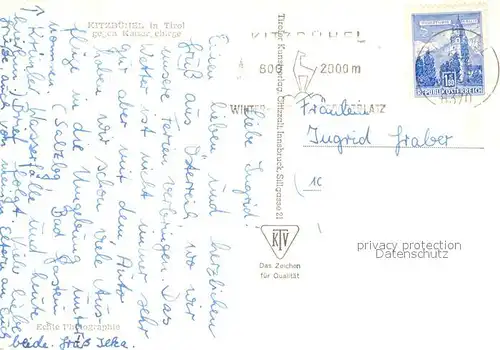 KITZBÜHEL in Tirol
gegen Kaisergebirge
KITZBÜHEL
800
2000 m
WINTER-
SPORTPLATZ
REPUBLIK ÖSTERREICH
Tiroler Kunstverlag Chizzali, Innsbruck, Sillgasse 21
Fräulein
Ingrid Graber
1C
KTV
Das Zeichen
für Qualität
privacy protection
Datenschutz
Liebe Ingrid!
Einen lieben und herzlichen
Gruß aus Österreich wo wir
unsere Ferien verbringen. Das
Wetter ist nicht immer sehr
gut aber mit dem Auto
haben wir schon viele Aus-
flüge in die Umgebung unter-
nommen. (Salzbg. Bad Gastein
Krimler Wasserfälle und heute
Brief folgt. Viele liebe
Grüße auch von meinen Eltern an Euch
beide. Gruß Ilka.
Echte Photographie